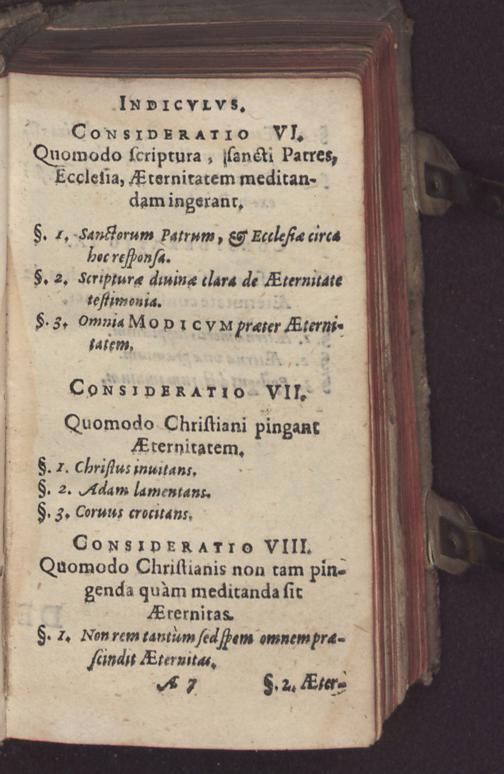 INDICVLVS.
CONSIDERATIO VI.
Quomodo ſcriptura, ſancti Patres,
Eccleſia, Æternitatem meditan-
dam ingerant.
§. 1. Sanctorum Patrum, & Eccleſiæ circa
hoc reſponſa.
§. 2. Scripturæ diuinæ clara de Æternitate
teſtimonia.
§. 3. Omnia MODICVM præter Æterni-
tatem.
CONSIDERATIO VII.
Quomodo Chriſtiani pingant
Æternitatem.
§. 1. Chriſtus inuitans.
§. 2. Adam lamentans.
§. 3. Coruus crocitans.
CONSIDERATIO VIII.
Quomodo Chriſtianis non tam pin-
genda quàm meditanda ſit
Æternitas.
§. 1. Non rem tantùm ſed ſpem omnem præ-
ſcindit Æternitas.
A 7 §. 2. Æter-